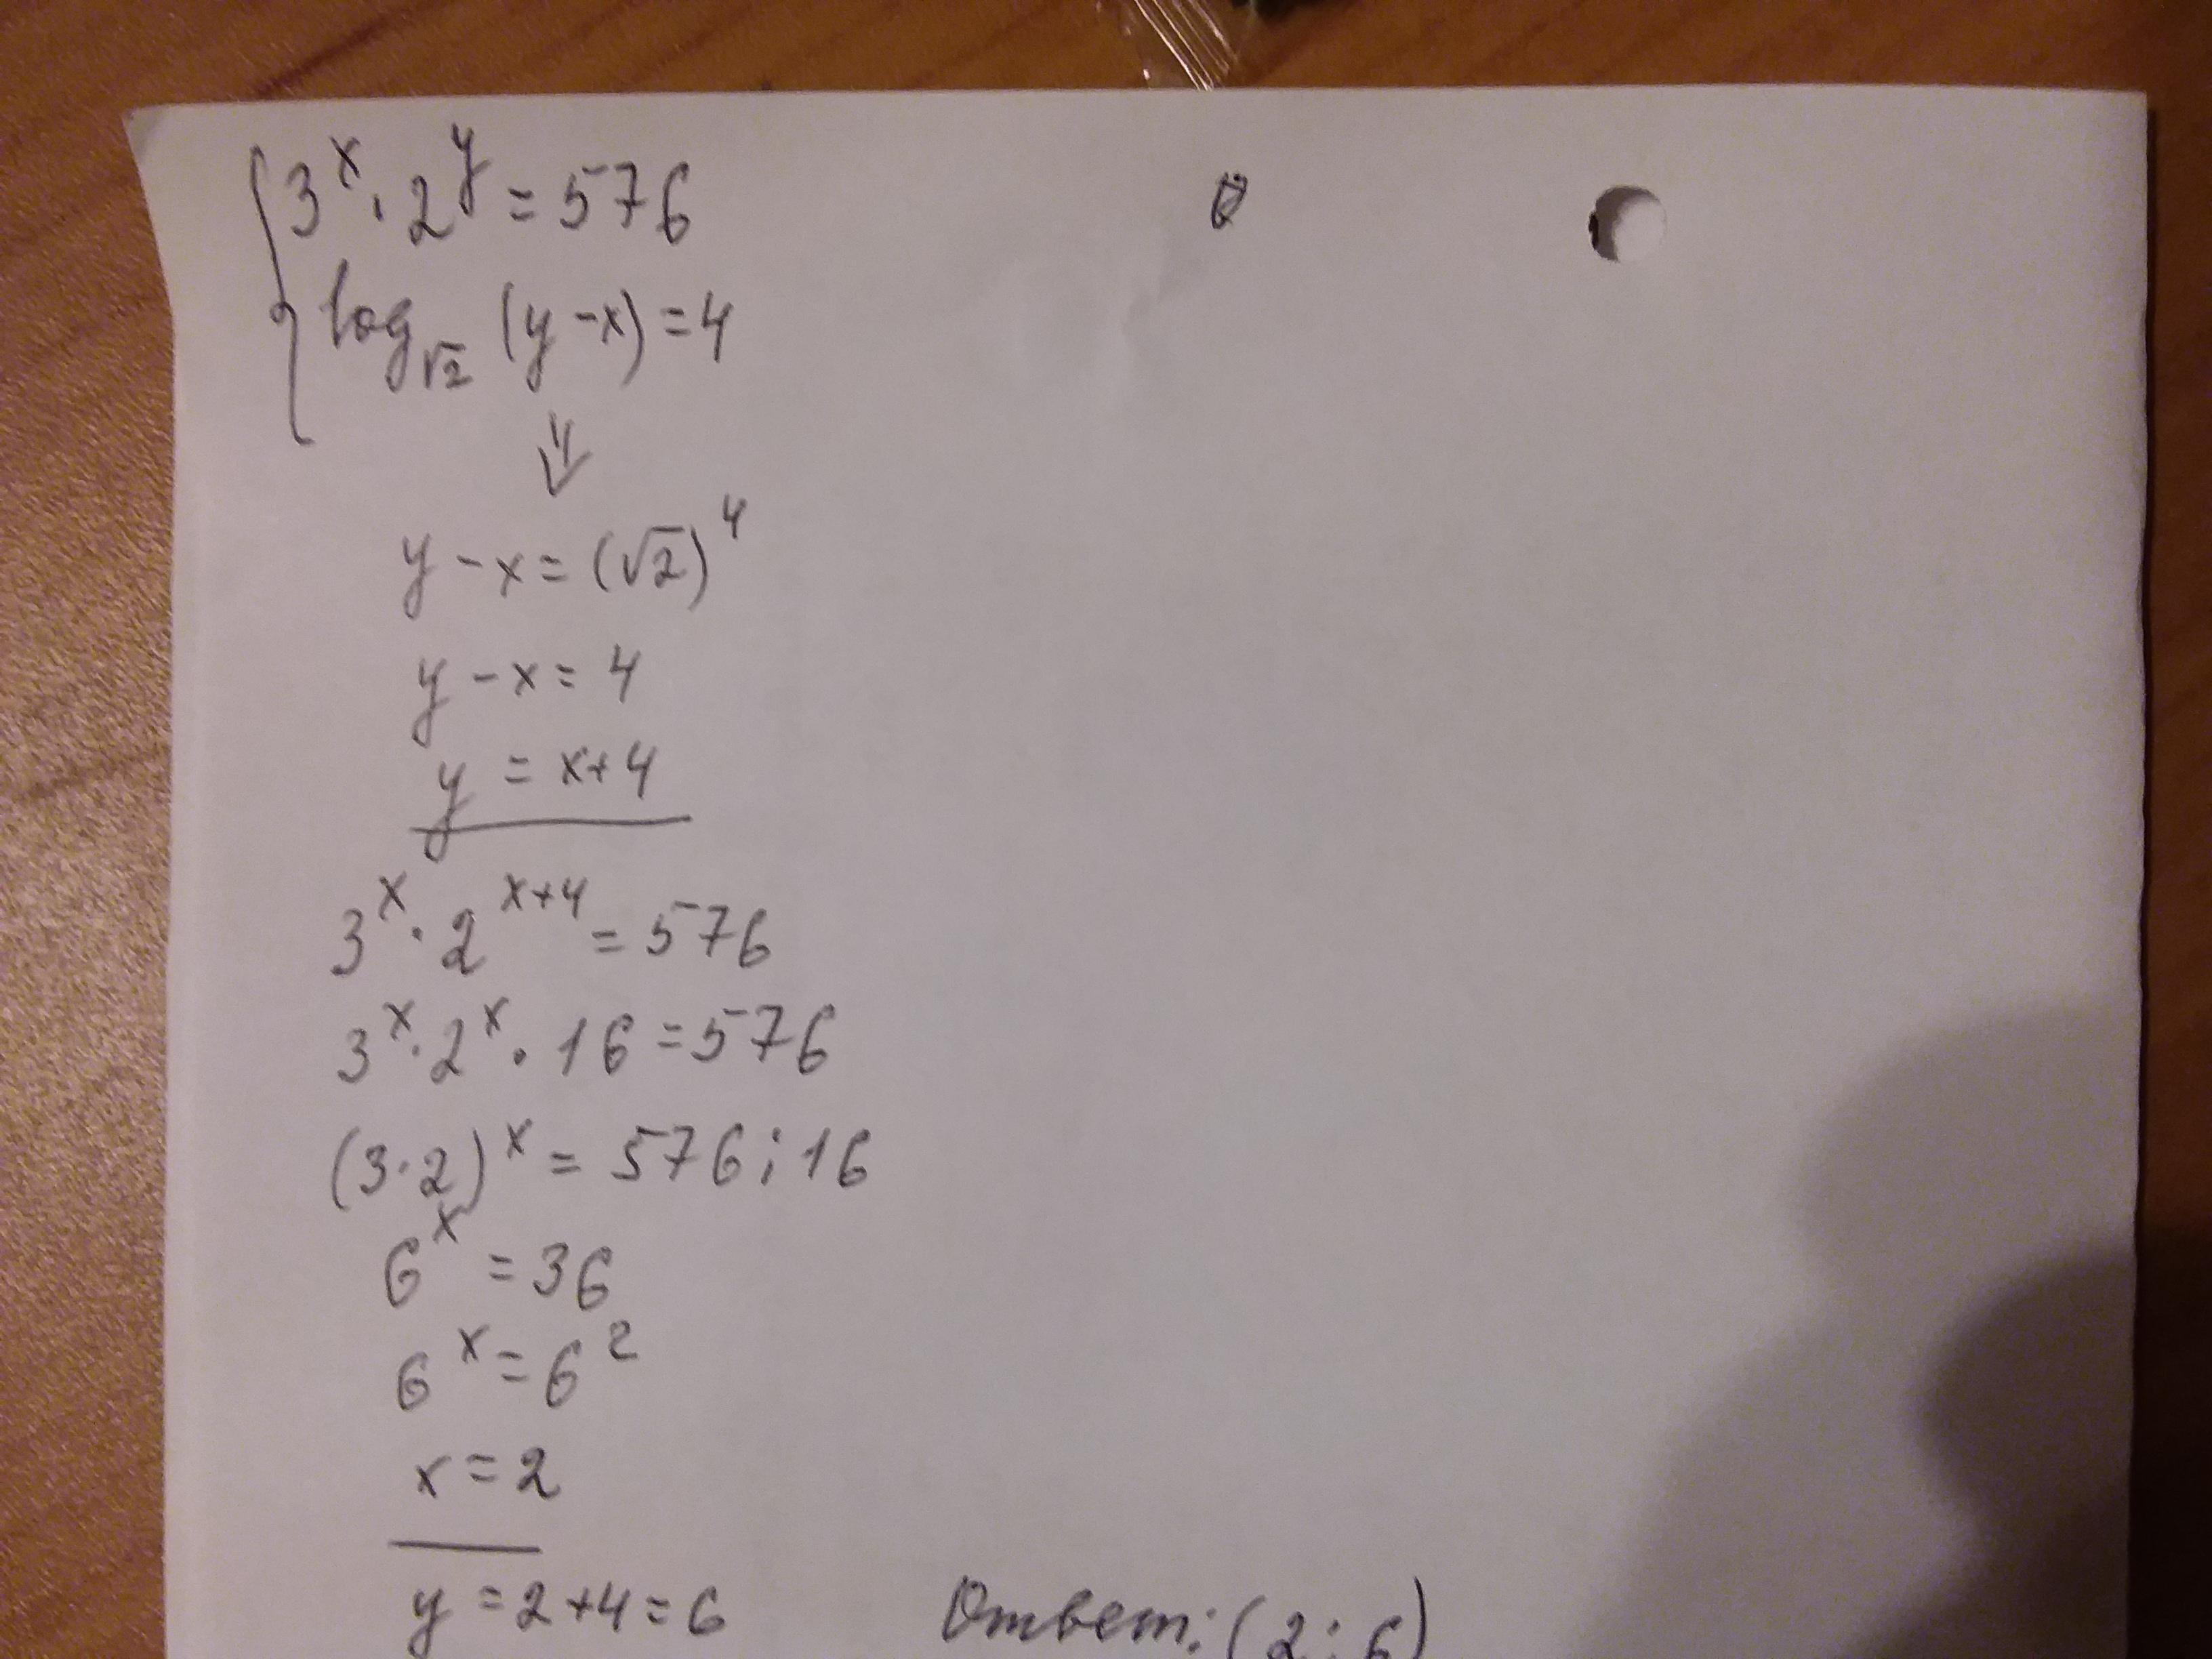 { 3^x · 2^y = 576
log_√2 (y - x) = 4
⇓
y - x = (√2)^4
y - x = 4
y = x+4
3^x · 2^(x+4) = 576
3^x · 2^x · 16 = 576
(3·2)^x = 576 : 16
6^x = 36
6^x = 6^2
x = 2
y = 2+4 = 6
Ответ: (2; 6)